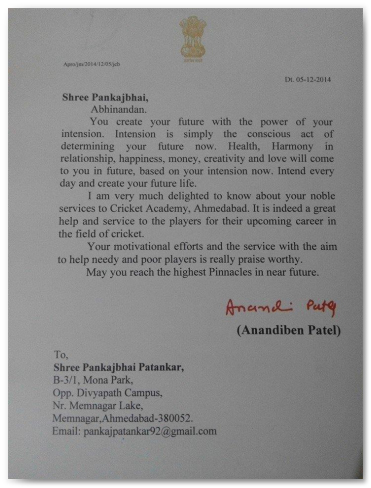 Apro/jm/2014/12/05/jch
Dt. 05-12-2014
Shree Pankajbhai,
Abhinandan.
You create your future with the power of your
intension. Intension is simply the conscious act of
determining your future now. Health, Harmony in
relationship, happiness, money, creativity and love will come
to you in future, based on your intension now. Intend every
day and create your future life.
I am very much delighted to know about your noble
services to Cricket Academy, Ahmedabad. It is indeed a great
help and service to the players for their upcoming career in
the field of cricket.
Your motivational efforts and the service with the aim
to help needy and poor players is really praise worthy.
May you reach the highest Pinnacles in near future.
Anandi Patel
(Anandiben Patel)
To,
Shree Pankajbhai Patankar,
B-3/1, Mona Park,
Opp. Divyapath Campus,
Nr. Memnagar Lake,
Memnagar,Ahmedabad-380052.
Email: pankajpatankar92@gmail.com